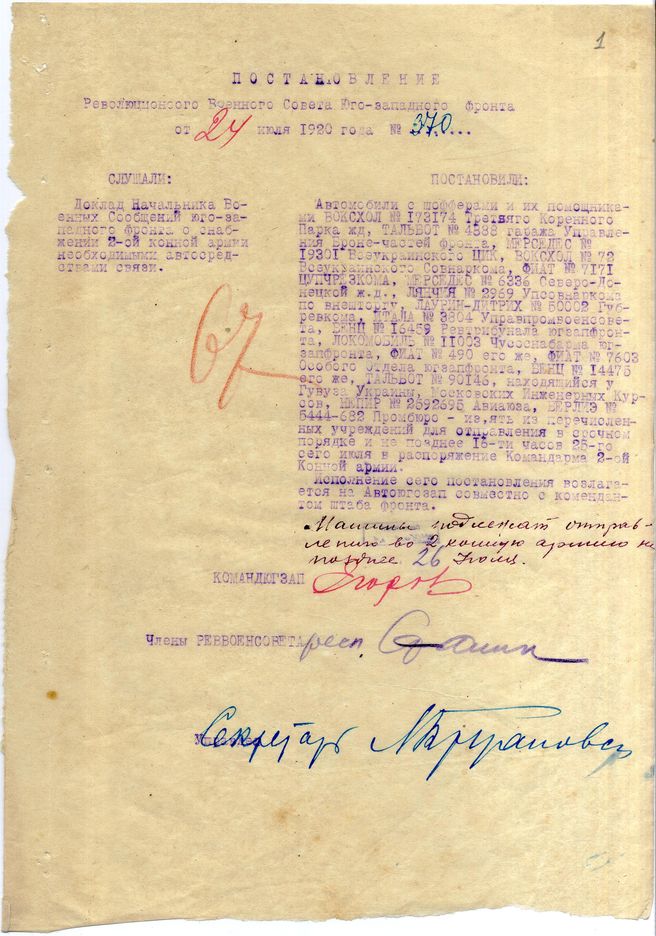 1
ПОСТАНОВЛЕНИЕ
Революционного Военного Совета Юго-западного фронта
от 24 июля 1920 года № 370...
СЛУШАЛИ:
Доклад Начальника Во-
енных Сообщений юго-за-
падного фронта о снаб-
жении 2-ой конной армии
необходимыми автосред-
ствами связи.
67
ПОСТАНОВИЛИ:
Автомобили с шофферами и их помощника-
ми ВОКСХОЛ № 173174 Третьяго Коренного
Парка жд, ТАЛЬБОТ № 4588 гаража Управле-
ния Броне-частей фронта, МЕРСЕДЕС №
19301 Всеукраинского ЦИК, ВОКСХОЛ № 72
Всеукуаинского Совнаркома, ФИАТ № 7171
ЦУПЧРЕЗКОМА, МЕРСЕДЕС № 6336 Северо-До-
нецкой ж.д., ЛЯНЧИЯ № 2969 Упсовнаркома
по внешторгу, ЛАУРИН-ДИТРИХ № 50002 Губ-
ревкома, ИТАЛА № 3804 Управпромвоенсове-
та, БЕНЦ № 16459 Ревтрибунала югзапфрон-
та, ЛОКОМОБИЛЬ № 11003 Чусоснабарма юг-
запфронта, ФИАТ № 490 его же, ФИАТ № 7603
Особого Отдела югзапфронта, БЕНЦ № 14475
его же, ТАЛЬБОТ № 90146, находящийся у
Гувуза Украины, Московских Инженерных Кур-
сов, № 2592695 Авиаюза, БЕРЛИЭ №
5444-682 Промбюро - из,ять из перечислен-
ных учреждений для отправления в срочном
порядке и не позднее 16-ти часов 25-го
сего июля в распоряжение Командарма 2-ой
Конной армии.
Исполнение сего постановления возлага-
ется на Автоюгозап совместно с комендан-
том штаба фронта.
Машины подлежат отправ-
лению во 2 конную армию не
позднее 26 Июля.
КОМАНДЮГЗАП Егоров
Члены РЕВВОЕНСОВЕТА респ. Сталин
Секретарь